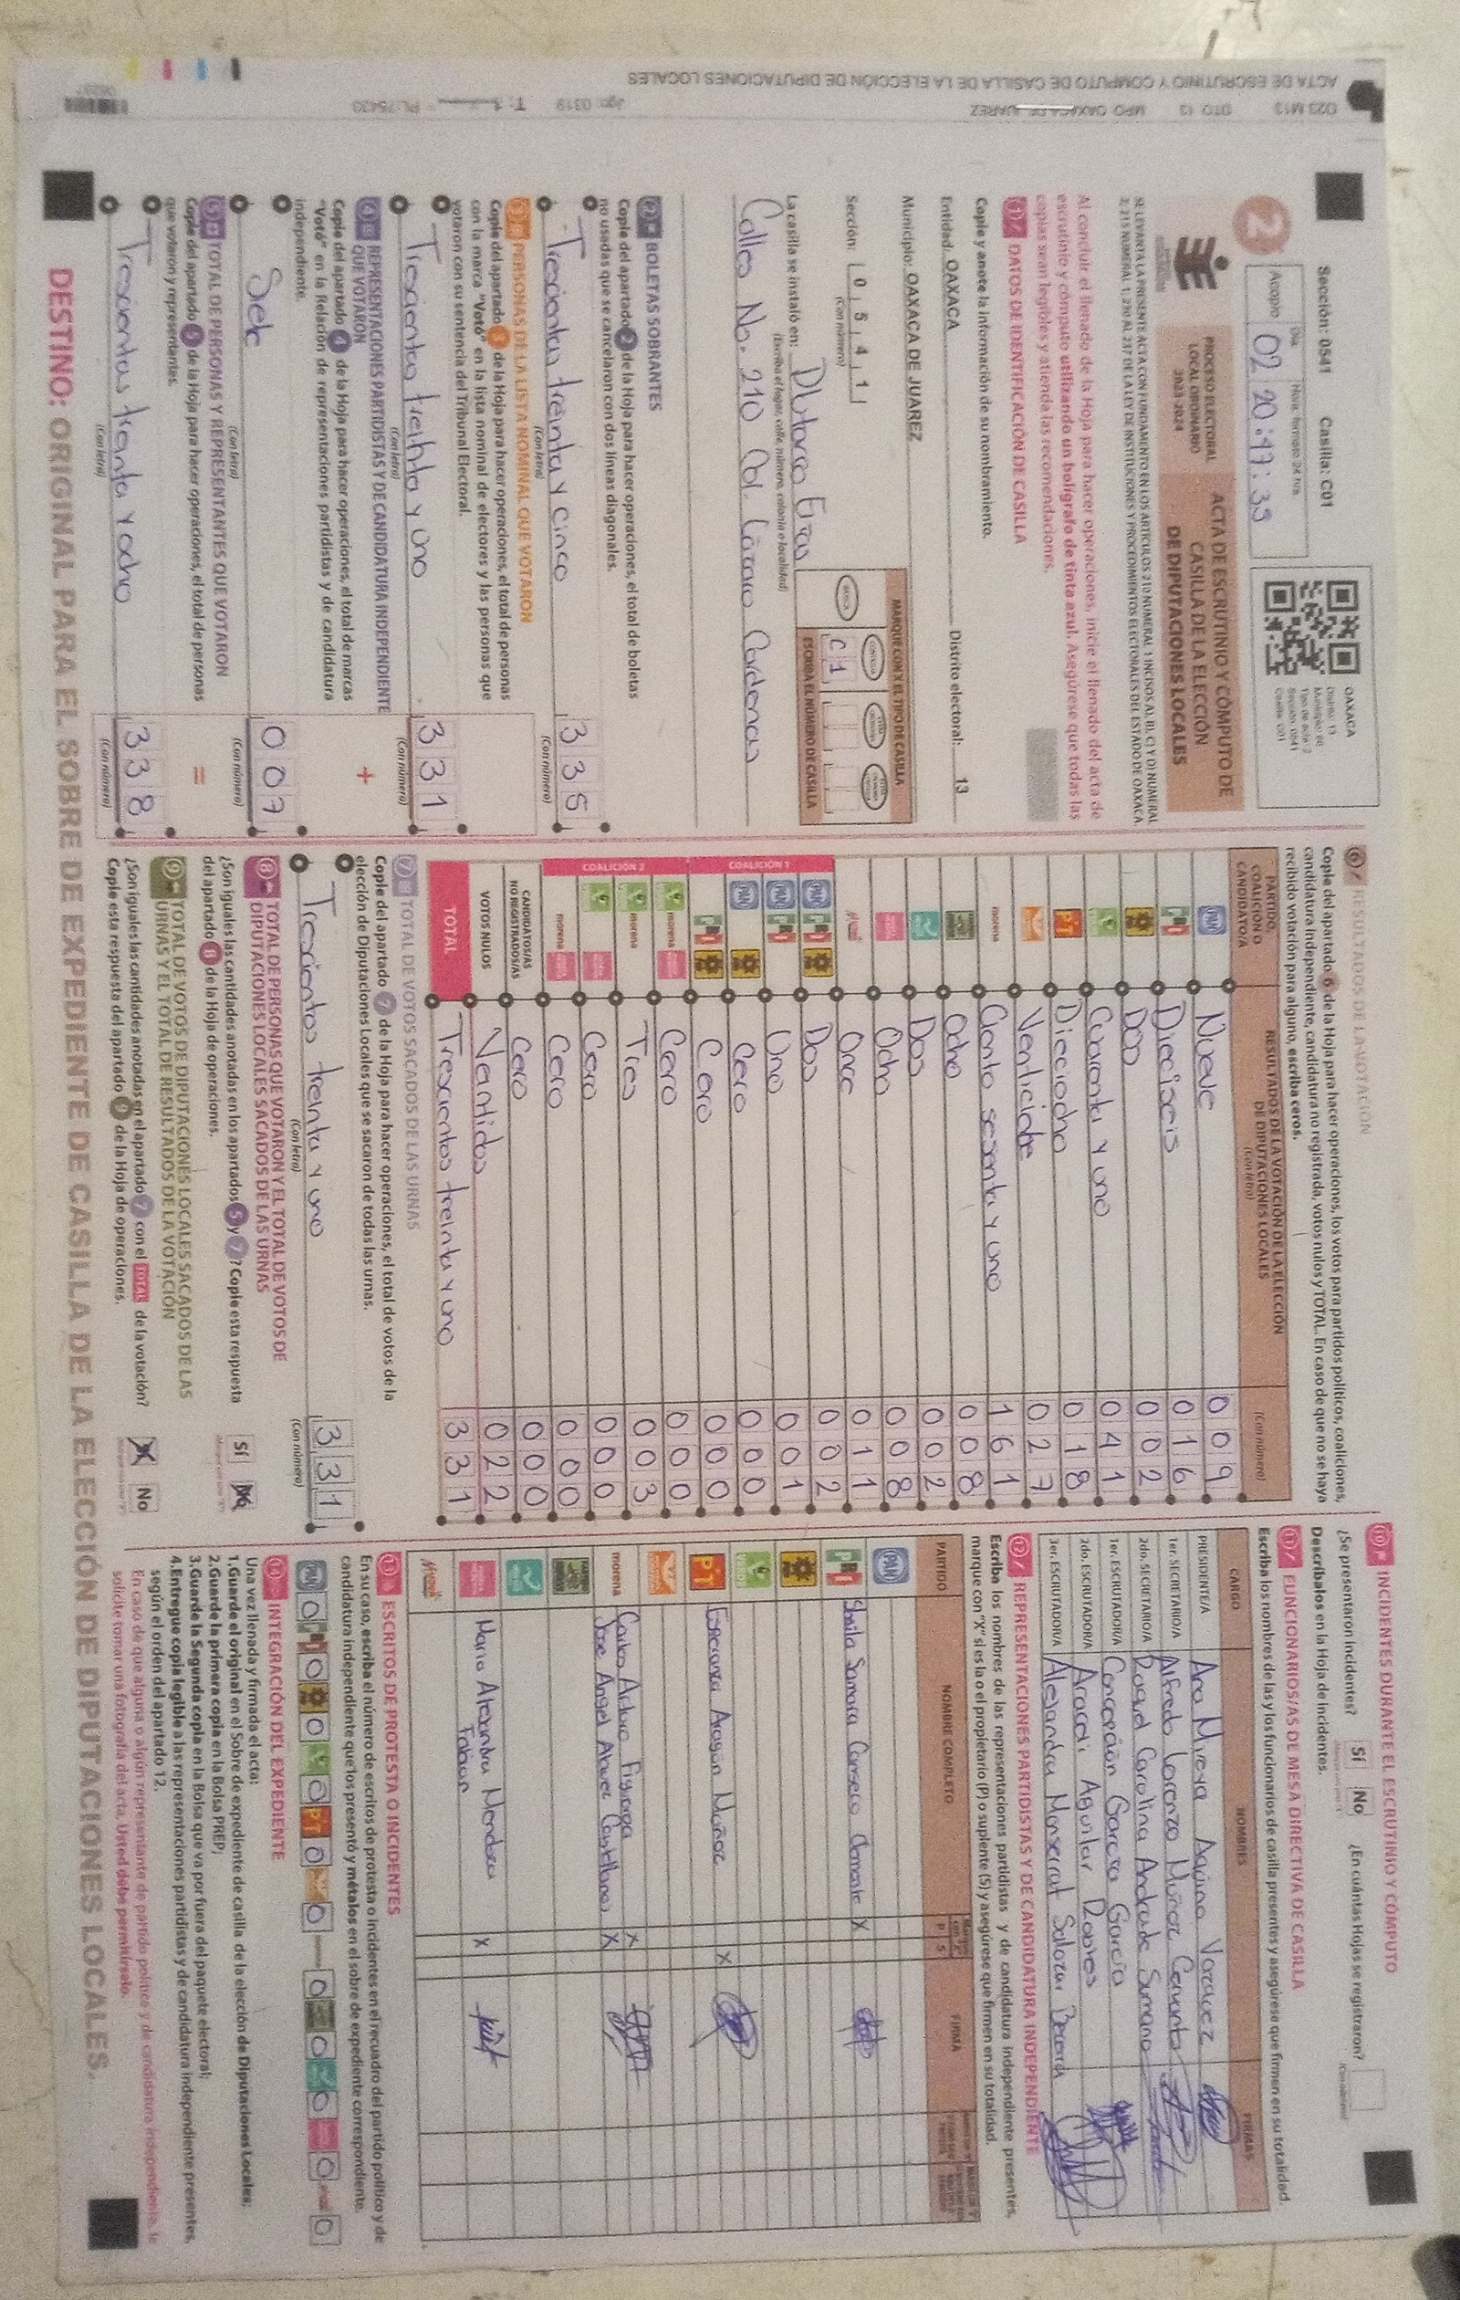 Sección: 0541 Casilla: C01
Acopio
Día
Hora, formato 24 hrs
02 20:47:35
OAXACA
Distrito: 13
Tipo de acta: 2
Sección: 0541
Casilla: C01
2
PROCESO ELECTORAL
LOCAL ORDINARIO
2023-2024
ACTA DE ESCRUTINIO Y CÓMPUTO DE
CASILLA DE LA ELECCIÓN
DE DIPUTACIONES LOCALES
SE LEVANTA LA PRESENTE ACTA CON FUNDAMENTO EN LOS ARTÍCULOS 210 NUMERAL 1 INCISOS A), B), C) Y D) NUMERAL
2; 215 NUMERAL 1; 230 AL 237 DE LA LEY DE INSTITUCIONES Y PROCEDIMIENTOS ELECTORALES DEL ESTADO DE OAXACA.
Al concluir el llenado de la Hoja para hacer operaciones, inicie el llenado del acta de
escrutinio y cómputo utilizando un bolígrafo de tinta azul. Asegúrese que todas las
copias sean legibles y atienda las recomendaciones.
1 DATOS DE IDENTIFICACIÓN DE CASILLA
Copie y anote la información de su nombramiento.
Entidad: OAXACA Distrito electoral: 13
Municipio: OAXACA DE JUAREZ
Sección: 0 5 4 1
(Con número)
MARQUE CON X EL TIPO DE CASILLA
BÁSICA
CONTIGUA
C 1
ESCRIBA EL NÚMERO DE CASILLA
La casilla se instaló en:
(Escriba el lugar, calle, número, colonia o localidad)
Calles No. 210 Col. Lázaro Cardenas
2 BOLETAS SOBRANTES
Copie del apartado 2 de la Hoja para hacer operaciones, el total de boletas
no usadas que se cancelaron con dos líneas diagonales.
Trescientos treinta y cinco 3 3 5
(Con letra) (Con número)
3 PERSONAS DE LA LISTA NOMINAL QUE VOTARON
Copie del apartado 3 de la Hoja para hacer operaciones, el total de personas
con la marca "Votó" en la lista nominal de electores y las personas que
votaron con su sentencia del Tribunal Electoral.
Trescientos treinta y uno 3 3 1
(Con letra) (Con número)
+
4 REPRESENTACIONES PARTIDISTAS Y DE CANDIDATURA INDEPENDIENTE
QUE VOTARON
Copie del apartado 4 de la Hoja para hacer operaciones, el total de marcas
"Votó" en la Relación de representaciones partidistas y de candidatura
independiente.
Siete 0 0 7
(Con letra) (Con número)
=
5 TOTAL DE PERSONAS Y REPRESENTANTES QUE VOTARON
Copie del apartado 5 de la Hoja para hacer operaciones, el total de personas
que votaron y representantes.
Trescientos treinta y ocho 3 3 8
(Con letra) (Con número)
6 RESULTADOS DE LA VOTACIÓN
Copie del apartado 6 de la Hoja para hacer operaciones, los votos para partidos políticos, coaliciones,
candidatura independiente, candidatura no registrada, votos nulos y TOTAL. En caso de que no se haya
recibido votación para alguno, escriba ceros.
PARTIDO,
COALICIÓN O
CANDIDATO/A
RESULTADOS DE LA VOTACIÓN DE LA ELECCIÓN
DE DIPUTACIONES LOCALES
(Con letra)
(Con número)
PAN Nueve 0 0 9
PRI Dieciseis 0 1 6
Dos 0 0 2
VERDE Cuarenta y uno 0 4 1
PT Dieciocho 0 1 8
Venticiete 0 2 7
morena Ciento sesenta y uno 1 6 1
Ocho 0 0 8
Dos 0 0 2
Ocho 0 0 8
Once 0 1 1
COALICIÓN 1
PAN PRI Dos 0 0 2
PAN PRI Uno 0 0 1
PAN Cero 0 0 0
PRI Cero 0 0 0
COALICIÓN 2
morena Cero 0 0 0
morena Tres 0 0 3
Cero 0 0 0
morena Cero 0 0 0
CANDIDATOS/AS
NO REGISTRADOS/AS Cero 0 0 0
VOTOS NULOS Ventidos 0 2 2
TOTAL Trescientos treinta y uno 3 3 1
7 TOTAL DE VOTOS SACADOS DE LAS URNAS
Copie del apartado 7 de la Hoja para hacer operaciones, el total de votos de la
elección de Diputaciones Locales que se sacaron de todas las urnas.
Trescientos treinta y uno 3 3 1
(Con letra) (Con número)
8 TOTAL DE PERSONAS QUE VOTARON Y EL TOTAL DE VOTOS DE
DIPUTACIONES LOCALES SACADOS DE LAS URNAS
¿Son iguales las cantidades anotadas en los apartados 5 y 7? Copie esta respuesta
del apartado 8 de la Hoja de operaciones.
Sí No
9 TOTAL DE VOTOS DE DIPUTACIONES LOCALES SACADOS DE LAS
URNAS Y EL TOTAL DE RESULTADOS DE LA VOTACIÓN
¿Son iguales las cantidades anotadas en el apartado 7 con el TOTAL de la votación?
Copie esta respuesta del apartado 9 de la Hoja de operaciones.
No
10 INCIDENTES DURANTE EL ESCRUTINIO Y CÓMPUTO
¿Se presentaron incidentes? Sí No ¿En cuántas Hojas se registraron?
(Con número)
Descríbalos en la Hoja de incidentes.
11 FUNCIONARIOS/AS DE MESA DIRECTIVA DE CASILLA
Escriba los nombres de las y los funcionarios de casilla presentes y asegúrese que firmen en su totalidad.
CARGO NOMBRES FIRMAS
PRESIDENTE/A Ana Mireya Aquino Vazquez
1er. SECRETARIO/A Alfredo Lorenzo Muñoz Cervantes
2do. SECRETARIO/A Raquel Carolina Andrade Sumano
1er. ESCRUTADOR/A Concepción Garcia Garcia
2do. ESCRUTADOR/A Araceli Aguilar Robles
3er. ESCRUTADOR/A Alejandra Monserrat Salazar Becerra
12 REPRESENTACIONES PARTIDISTAS Y DE CANDIDATURA INDEPENDIENTE
Escriba los nombres de las representaciones partidistas y de candidatura independiente presentes,
marque con "X" si es la o el propietario (P) o suplente (S) y asegúrese que firmen en su totalidad.
PARTIDO NOMBRE COMPLETO P S FIRMA
PAN
PRI Sheila Samara Canseco Clemente X
VERDE
PT Esperanza Aragon Muñoz X
morena Carlos Arturo Figueroa X
Jose Angel Abner Castellanos X
Maria Alejandra Mendoza X
Fabian
13 ESCRITOS DE PROTESTA O INCIDENTES
En su caso, escriba el número de escritos de protesta o incidentes en el recuadro del partido político y de
candidatura independiente que los presentó y métalos en el sobre de expediente correspondiente.
PAN 0 PRI 0 0 0 PT 0 0 0 0 0 0 0
14 INTEGRACIÓN DEL EXPEDIENTE
Una vez llenada y firmada el acta:
1.Guarde el original en el Sobre de expediente de casilla de la elección de Diputaciones Locales;
2.Guarde la primera copia en la Bolsa PREP;
3.Guarde la Segunda copia en la Bolsa que va por fuera del paquete electoral;
4.Entregue copia legible a las representaciones partidistas y de candidatura independiente presentes,
según el orden del apartado 12.
En caso de que alguna o algún representante de partido político y de candidatura independiente, le
solicite tomar una fotografía del acta, Usted debe permitírselo.
DESTINO: ORIGINAL PARA EL SOBRE DE EXPEDIENTE DE CASILLA DE LA ELECCIÓN DE DIPUTACIONES LOCALES.
023 M13 DTO 13 MPO OAXACA DE JUAREZ Jgo: 0319 T: 1 PL:75430
ACTA DE ESCRUTINIO Y CÓMPUTO DE CASILLA DE LA ELECCIÓN DE DIPUTACIONES LOCALES